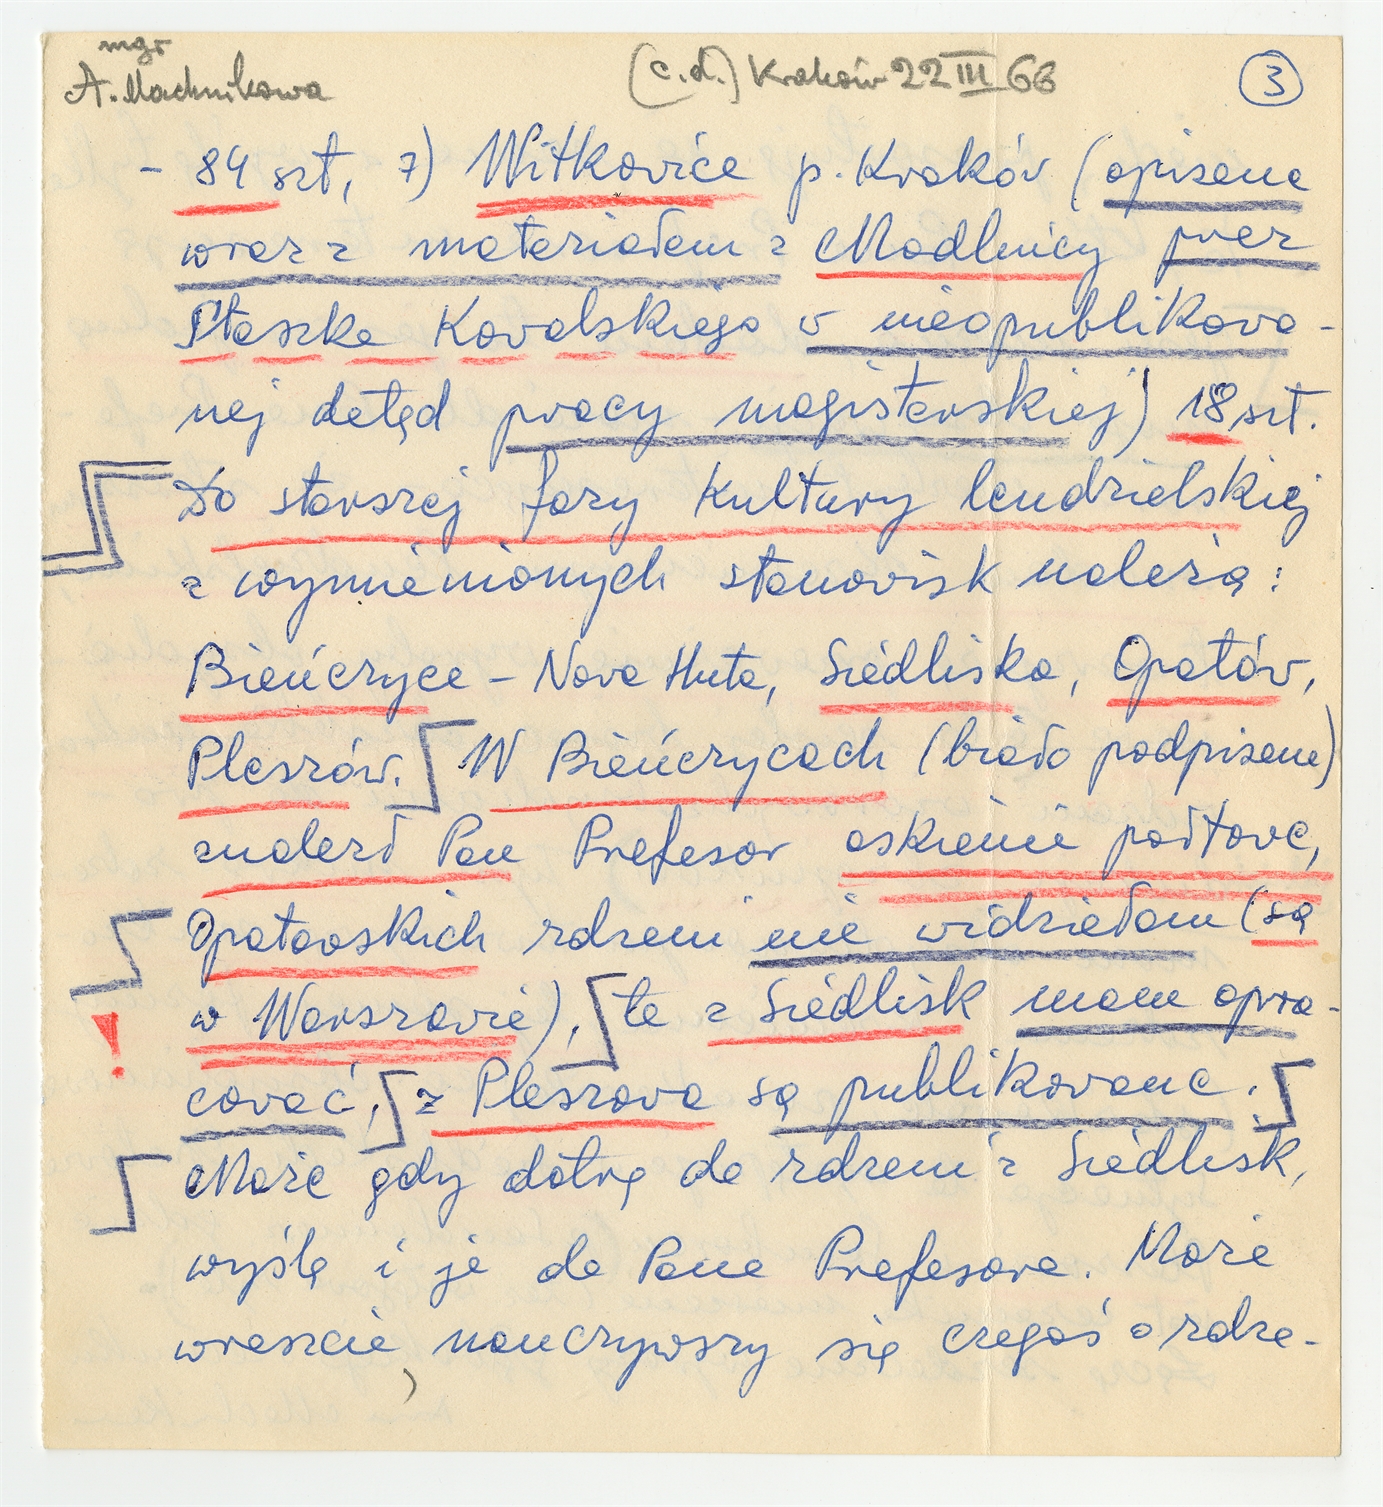 mgr
A. Machnikowa
(c.d.) Kraków 22 III 66
3
- 84 szt, 7) Witkowice p. Kraków (opisane
wraz z materiałem z Modlnicy przez
Staszka Kowalskiego w nieopublikowa-
nej dotąd pracy magisterskiej) 18 szt.
Do starszej fazy kultury lendzielskiej
z wymienionych stanowisk należą:
Bieńczyce - Nowa Huta, Siedliska, Opatów,
Pleszów. W Bieńczycach (biało podpisane)
znalazł Pan Profesor oskienie poitove,
Opatowskich rdzeni nie widziałam (są
w Warszawie), te z Siedlisk mam opra-
cować, z Pleszowa są publikowane.
Może gdy dotrę do rdzeni z Siedlisk,
wyślę i je do Pana Profesora. Może
wreszcie, nauczywszy się czegoś o rdze-